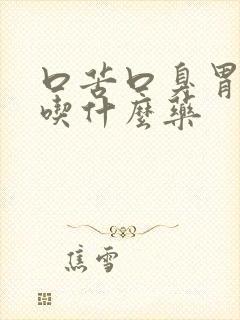 口苦口臭胃
喫什麼藥
焦雪